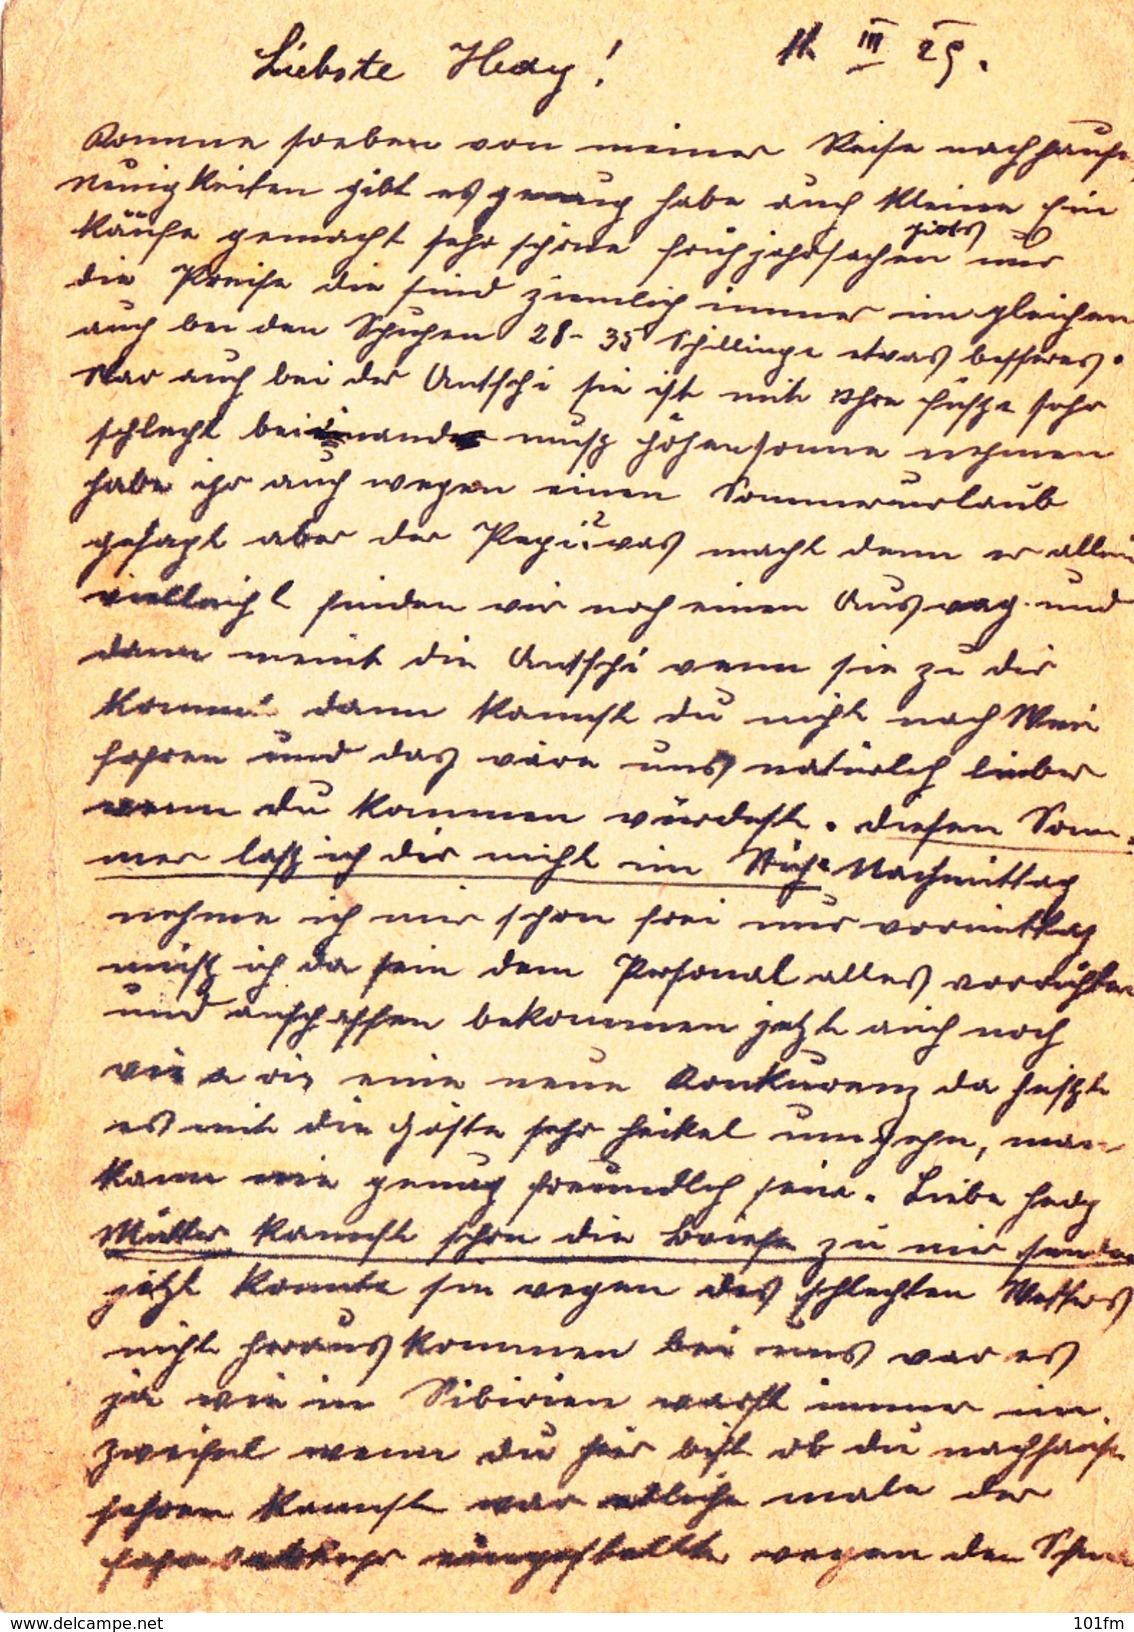 Liebste Hedy! 11 III 29.
Komme soeben von meiner Reise nachhause,
Neuigkeiten gibt es genug habe auch kleine Ein
käufe gemacht sehr schöne frühjahrsachen gibts nur
die Preise die sind ziemlich immer im gleichen
auch bei den Schuhen 28-35 Schillinge etwas besseres.
War auch bei der Antschi sie ist mit ihre füsze sehr
schlecht beinander musz höhensonne nehmen
habe ihr auch wegen einen Sommerurlaub
gesagt aber der Pepi? was macht denn er allein
vielleicht finden wir noch einen Ausweg und
dann meint die Antschi wenn sie zu dir
kommt dann kannst du nicht nach Wien
fahren und das wäre uns natürlich lieber
wenn du kommen würdest. diesen Som
mer lasz ich dir nicht im Stich. Nachmittag
nehme ich mir schon frei nur vormittag
musz ich da sein dem Personal alles vorrichten
und anschaffen bekommen jetzt auch noch
vis a vis eine neue Konkurenz da heiszt
es mit die Gäste sehr heikel umgehn, man
kann nie genug freundlich sein. Liebe Hedy
Mutter kannst schon die Briefe zu mir senden
jetzt konnte sie wegen des schlechten Wetters
nicht herauskommen bei uns war es
ja wie in Sibirien warst immer im
zweifel wenn du hier bist ob du nachhause
fahren kannst war etliche male der
fahrverkehr eingestellt wegen den Schnee
https://www.delcampe.net 101fm